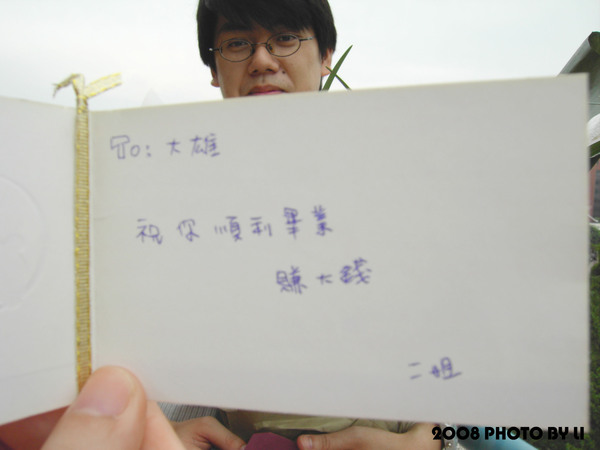 To: 大雄
祝你順利畢業
賺大錢
二姐
2008 PHOTO BY LI